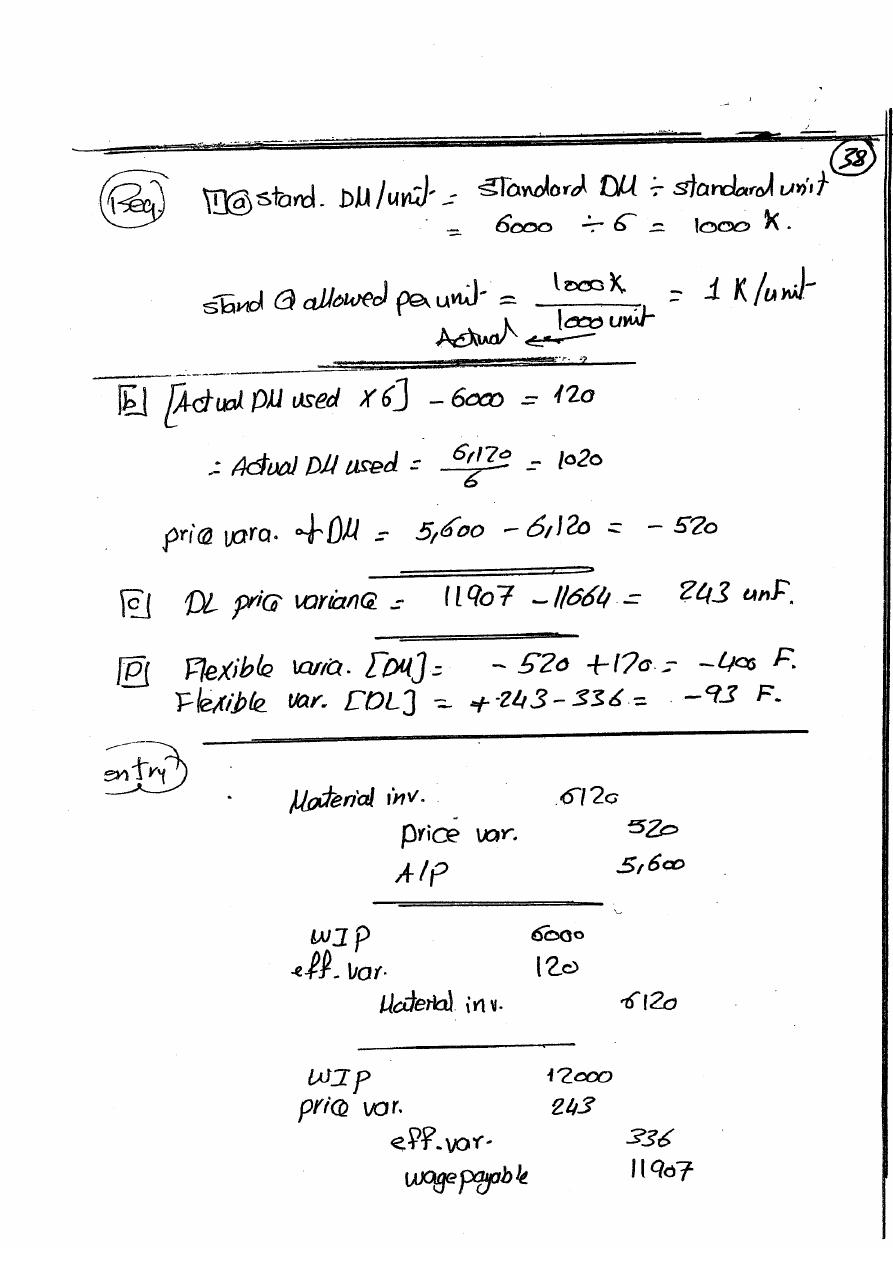 38
Req. 1 a stand. DM/unit = STandard DM ÷ standard unit
= 6000 ÷ 6 = 1000 K.
stand Q allowed per unit = 1000 K / 1000 unit = 1 K/unit
Actual ←
b [Actual DM used X 6] - 6000 = 120
∴ Actual DM used = 6,120 / 6 = 1020
price vara. of DM = 5,600 - 6,120 = - 520
c DL price variance = 11907 - 11664 = 243 unF.
D Flexible varia. [DM] = - 520 + 120 = -400 F.
Flexible var. [DL] = + 243 - 336 = - 93 F.
entry
Material inv. 6120
price var. 520
A/P 5,600
WIP 6000
eff. var. 120
Material inv. 6120
WIP 12000
price var. 243
eff. var. 336
wage payable 11907